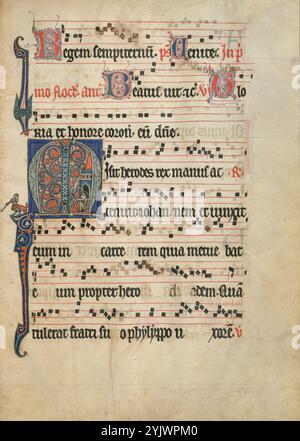 Regem sempiternū. ps Venite. In p̄
mo noct̄. ant̄. Beatus uir. et̄. V Glo
ria et honore coron. eū d̄ne.
Misit herodes rex manus ac R
tenuit iohan nem et uinxit
eum in carce rem quia metue bat
e um propter hero dem. Quā
tulerat fratri su o phylyppo u xorē. V
alamy
Image ID: 2YJWPM0
www.alamy.com